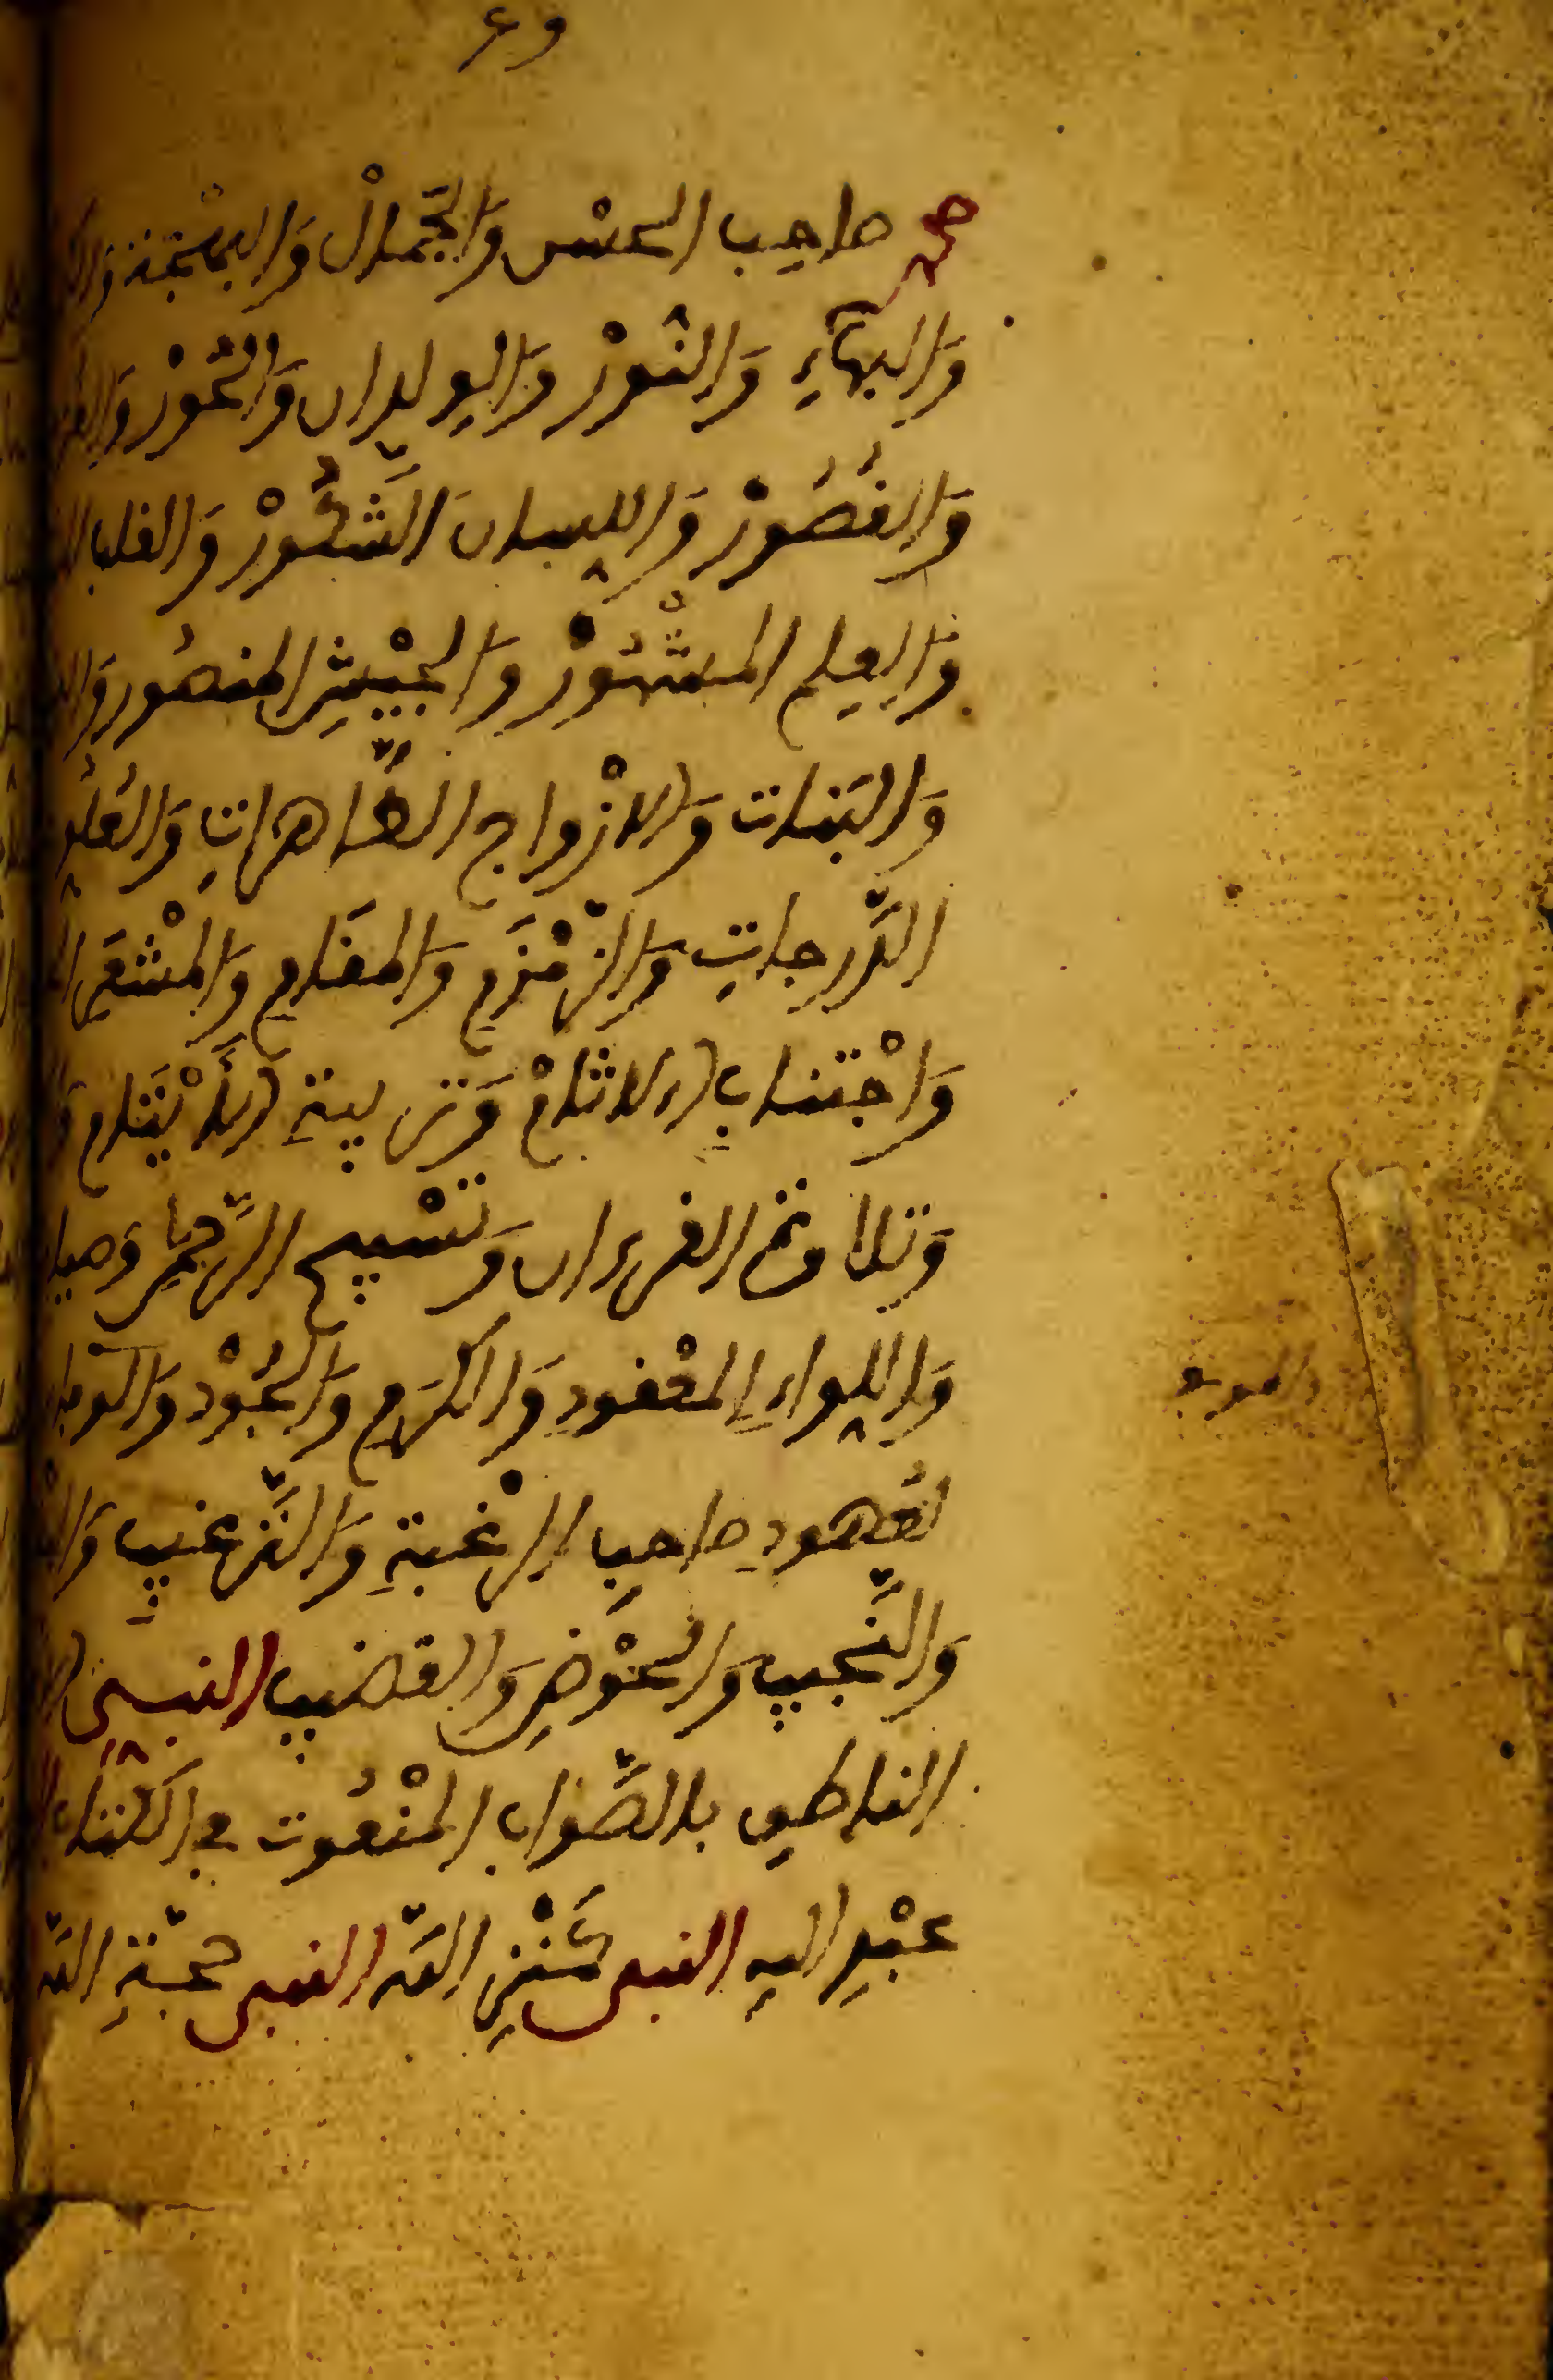 صاحب الحسن والجمال والبهجة
والبهاء والنور والولدان والحور
والقصور واللسان الشكور والقلب
والعلم المشهور والجيش المنصور
والبنات والازواج الطاهرات والعلو
الدرجات والزمزم والمقام والمشعر
واجتناب الاثام وتربية الأيتام
وتلاوة القرءان وتسبيح الرحمن وصيا
واللواء المعقود والكرم والجود والوفا
لعهود صاحب الرغبة والترغيب
والنجيب والحوض والقضيب النبي
الناطق بالصواب المنعوت في الكتاب
عبد الله النبي كنز الله النبي حجة الله